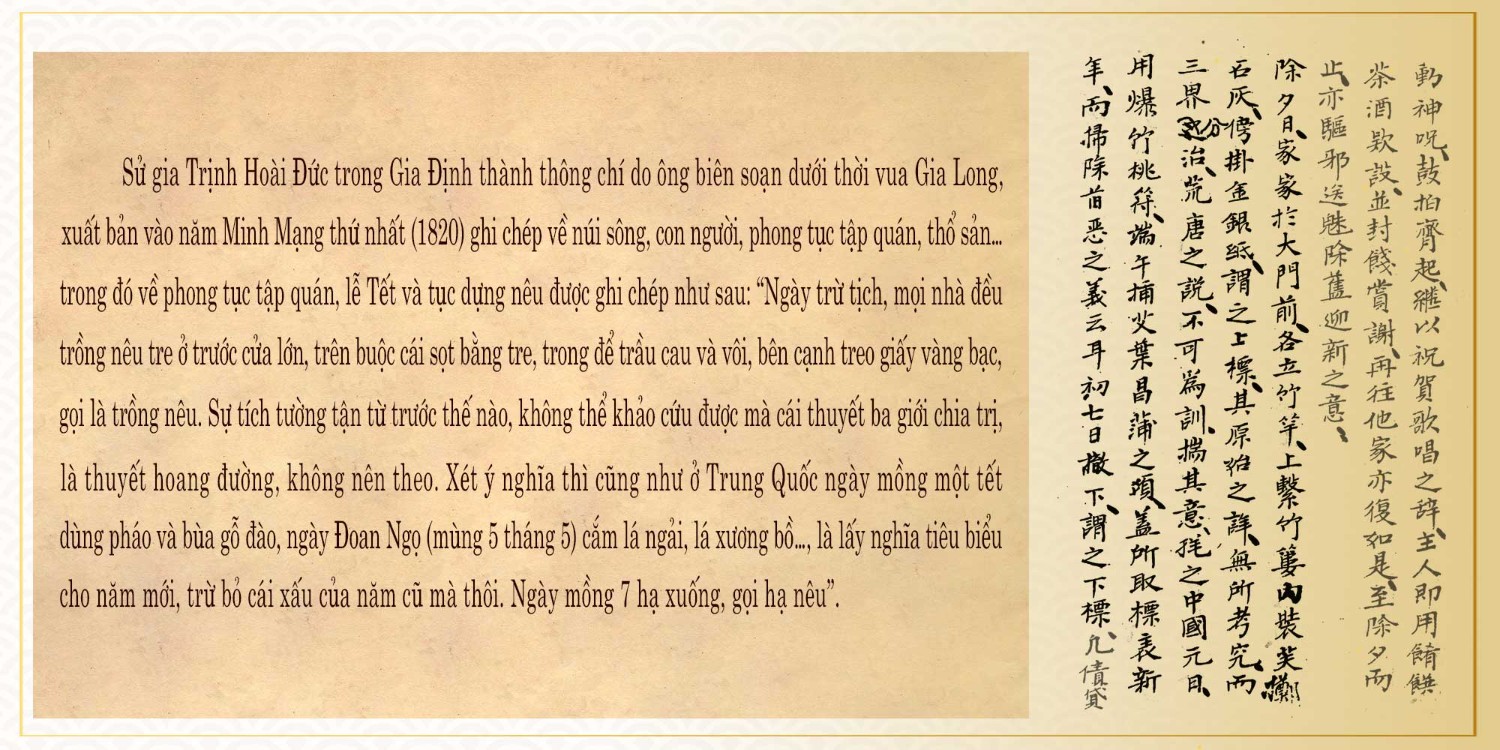 Sử gia Trịnh Hoài Đức trong Gia Định thành thông chí do ông biên soạn dưới thời vua Gia Long,
xuất bản vào năm Minh Mạng thứ nhất (1820) ghi chép về núi sông, con người, phong tục tập quán, thổ sản...
trong đó về phong tục tập quán, lễ Tết và tục dựng nêu được ghi chép như sau: “Ngày trừ tịch, mọi nhà đều
trồng nêu tre ở trước cửa lớn, trên buộc cái sọt bằng tre, trong để trầu cau và vôi, bên cạnh treo giấy vàng bạc,
gọi là trồng nêu. Sự tích tường tận từ trước thế nào, không thể khảo cứu được mà cái thuyết ba giới chia trị,
là thuyết hoang đường, không nên theo. Xét ý nghĩa thì cũng như ở Trung Quốc ngày mồng một tết
dùng pháo và bùa gỗ đào, ngày Đoan Ngọ (mùng 5 tháng 5) cắm lá ngải, lá xương bồ..., là lấy nghĩa tiêu biểu
cho năm mới, trừ bỏ cái xấu của năm cũ mà thôi. Ngày mồng 7 hạ xuống, gọi hạ nêu”.
動神呪、鼓拍齊起、繼以祝賀歌唱之辞、主人即用餚饌
茶酒欵設、並封餞賞謝、再往他家亦復如是、至除夕而
止、亦驅邪送魅除舊迎新之意、
除夕日、家家於大門前、各立竹竿、上繫竹簍內裝芙榔
石灰、傍掛金銀紙、謂之上標、其原始之詳、無所考究、而
三界分治、荒唐之説、不可為訓、揣其意、之中國元日、
用爆竹桃符、端午插艾葉昌蒲之類、蓋所取標表新
年、而掃除昔惡之義云耳初七日撤下、謂之下標、凡債貸